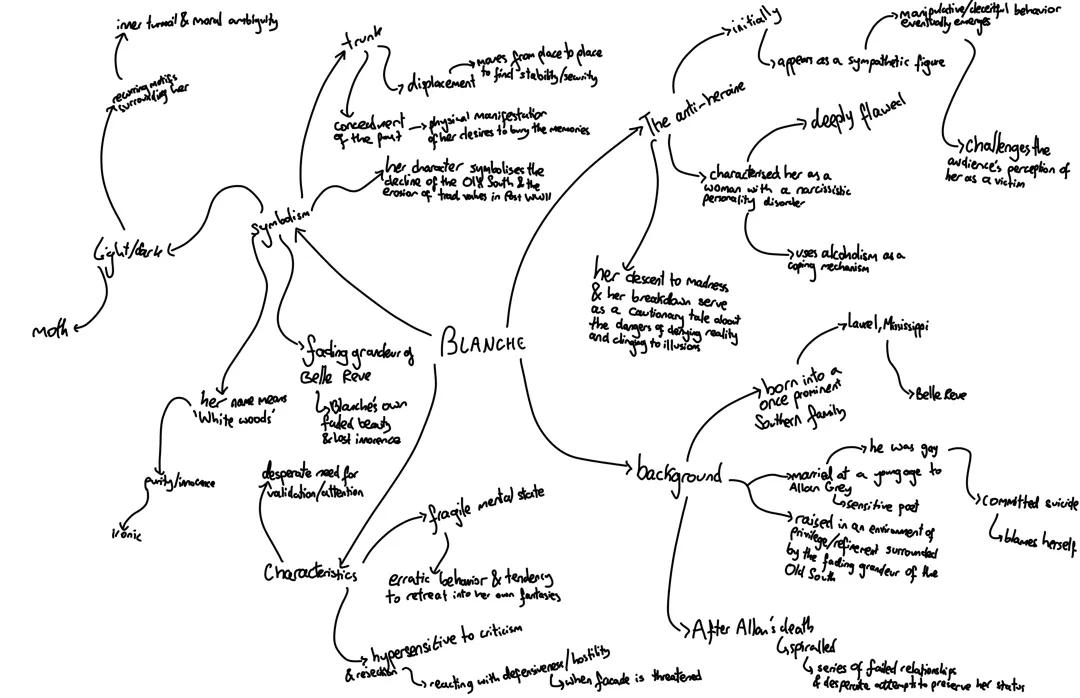 inner turmoil & moral ambiguity
recurring motifs
surrounding her
Light/dark
moth
trunk
displacement
moves from place to place
to find stability/security
concealment
of the past
physical manifestation
of her desires to bury the memories
her character symbolises the
decline of the Old South & the
erosion of trad values in Post WWII
symbolism
her name means
'White woods'
purity/innocence
Ironic
fading grandeur of
Belle Reve
Blanche's own
faded beauty
& lost innocence
BLANCHE
The anti-heroine
initially
appears as a sympathetic figure
manipulative/deceitful behavior
eventually emerges
challenges the
audience's perception of
her as a victim
characterised her as a
woman with a narcissistic
personality disorder
deeply flawed
uses alcoholism as a
coping mechanism
her descent to madness
& her breakdown serve
as a cautionary tale about
the dangers of denying reality
and clinging to illusions
background
born into a
once prominent
Southern family
Laurel, Mississippi
Belle Reve
married at a young age to
Allan Grey
sensitive poet
he was gay
committed suicide
blames herself
raised in an environment of
privilege/refinement surrounded
by the fading grandeur of the
Old South
After Allan's death
spiralled
series of failed relationships
& desperate attempts to preserve her status
Characteristics
desperate need for
validation/attention
fragile mental state
erratic behavior & tendency
to retreat into her own fantasies
hypersensitive to criticism
& rejection
reacting with defensiveness/hostility
when facade is threatened